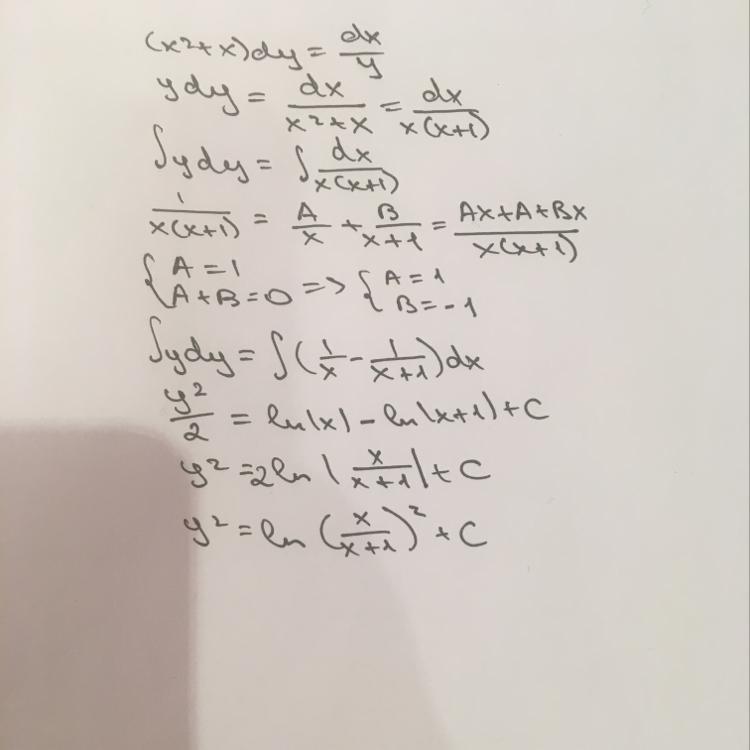 (x²+x)dy = dx/y
ydy = dx/(x²+x) = dx/(x(x+1))
∫ydy = ∫ dx/(x(x+1))
1/(x(x+1)) = A/x + B/(x+1) = (Ax+A+Bx)/(x(x+1))
{A=1, A+B=0 => {A=1, B=-1
∫ydy = ∫(1/x - 1/(x+1))dx
y²/2 = ln|x| - ln|x+1| + C
y² = 2ln|x/(x+1)| + C
y² = ln(x/(x+1))² + C